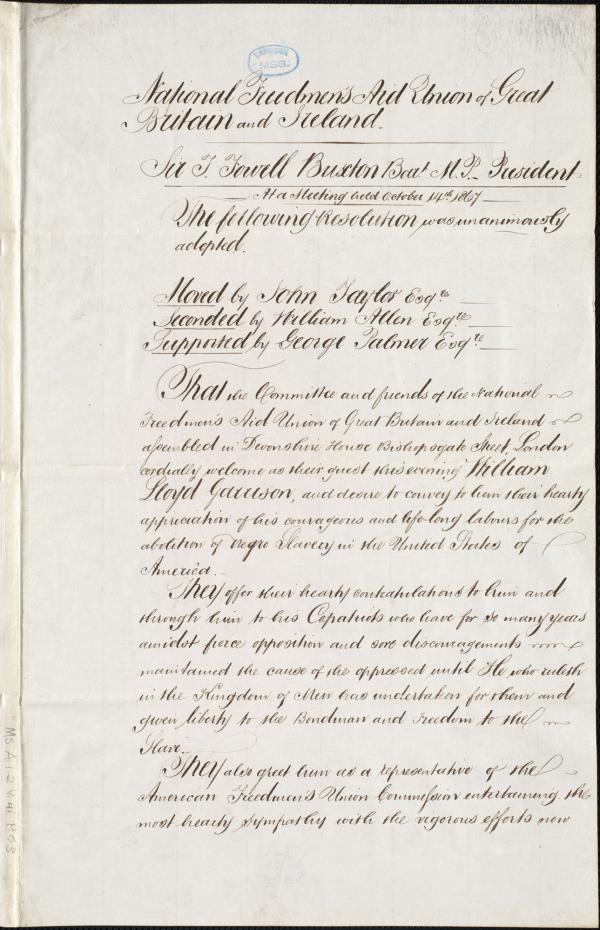 GARRISON
MSS.
National Freedmen's Aid Union of Great
Britain and Ireland.
Sir T. Fowell Buxton Bart M.P. President
At a Meeting held October 14th 1867
The following Resolution was unanimously
adopted.
Moved by John Taylor Esqre
Seconded by William Allen Esqre
Supported by George Palmer Esqre
That the Committee and friends of the National
Freedmen's Aid Union of Great Britain and Ireland
assembled in Devonshire House Bishopsgate Street, London
cordially welcome as their guest this evening William
Lloyd Garrison, and desire to convey to him their hearty
appreciation of his courageous and life-long labours for the
abolition of Negro Slavery in the United States of
America.
They offer their hearty contratulations to him and
through him to his Copatriots who have for so many years
amidst fierce opposition and sore discouragements
maintained the cause of the oppressed until He who ruleth
in the Kingdom of Men has undertaken for them and
given liberty to the Bondman and Freedom to the
Slave.
They also greet him as a representative of the
American Freedmen's Union Commission entertaining the
most hearty sympathy with the vigorous efforts now